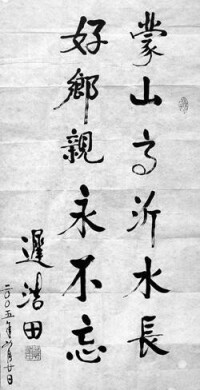 蒙山高沂水長
好鄉親永不忘
遲浩田
二〇〇五年八月廿日